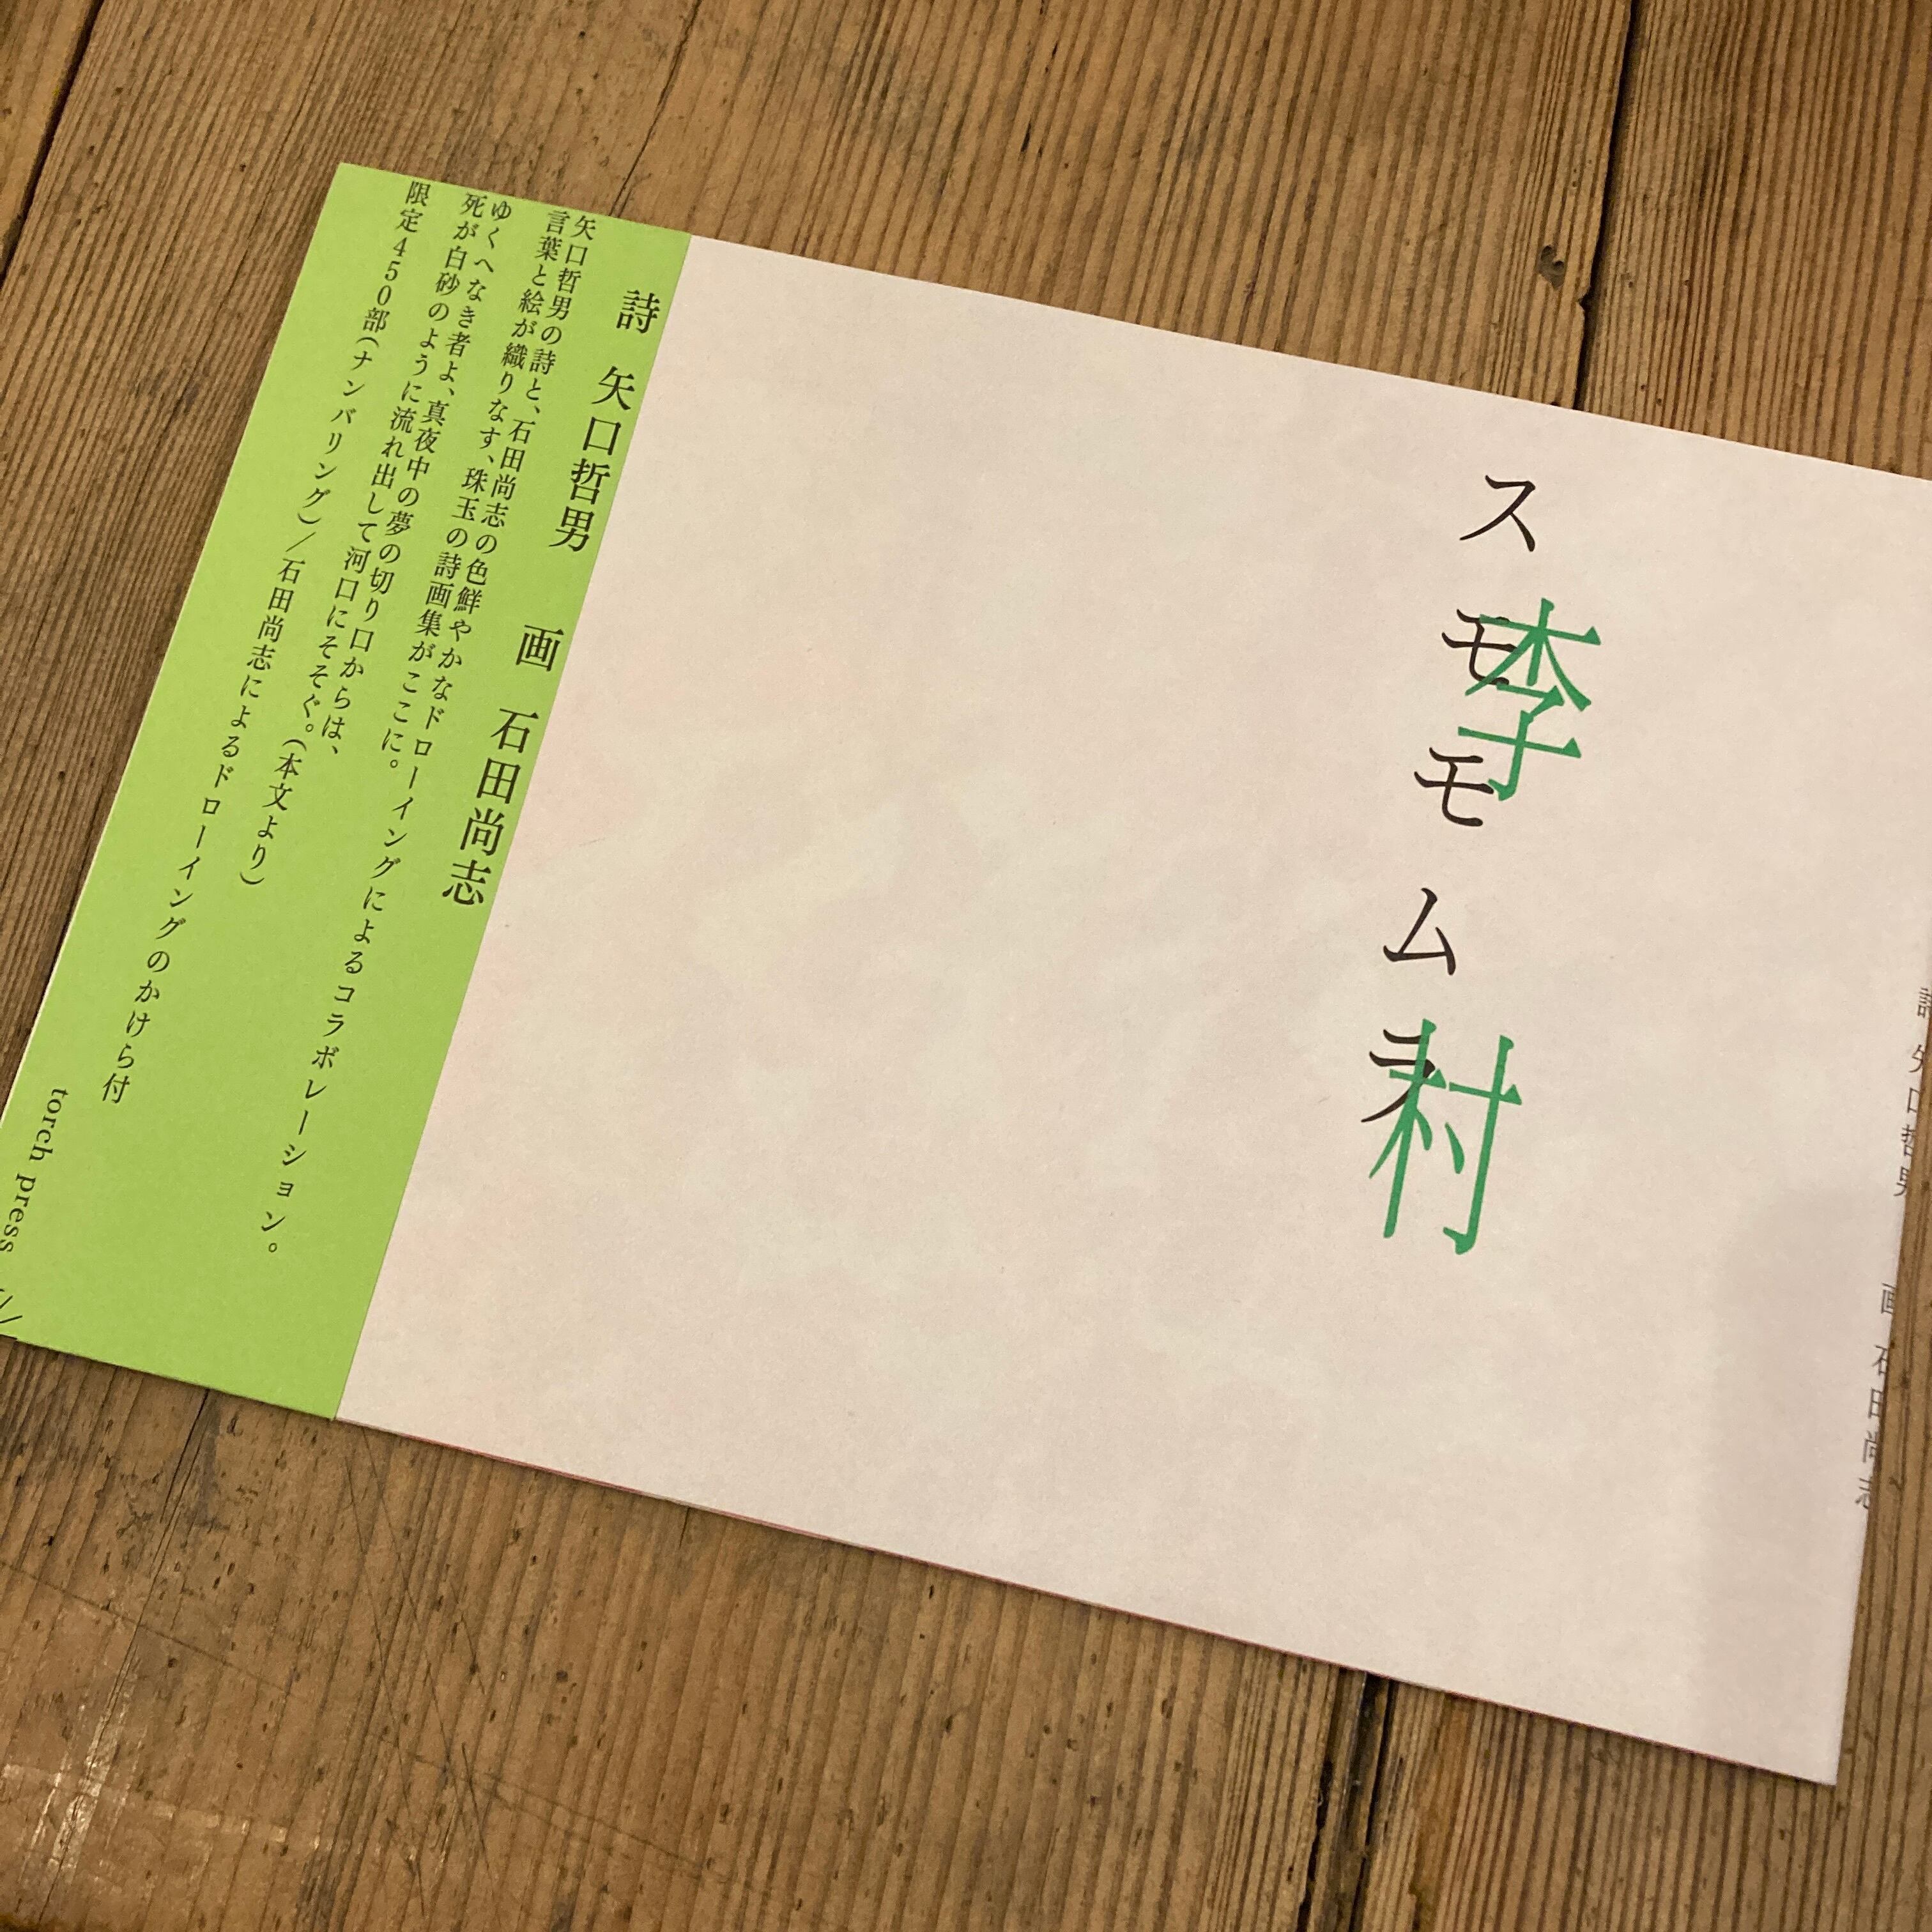 スモモムラ
李村
詩 矢口哲男 画 石田尚志
詩 矢口哲男 画 石田尚志
矢口哲男の詩と、石田尚志の色鮮やかなドローイングによるコラボレーション。
言葉と絵が織りなす、珠玉の詩画集がここに。
ゆくへなき者よ、真夜中の夢の切り口からは、
死が白砂のように流れ出して河口にそそぐ。（本文より）
限定450部（ナンバリング）／石田尚志によるドローイングのかけら付
torch press